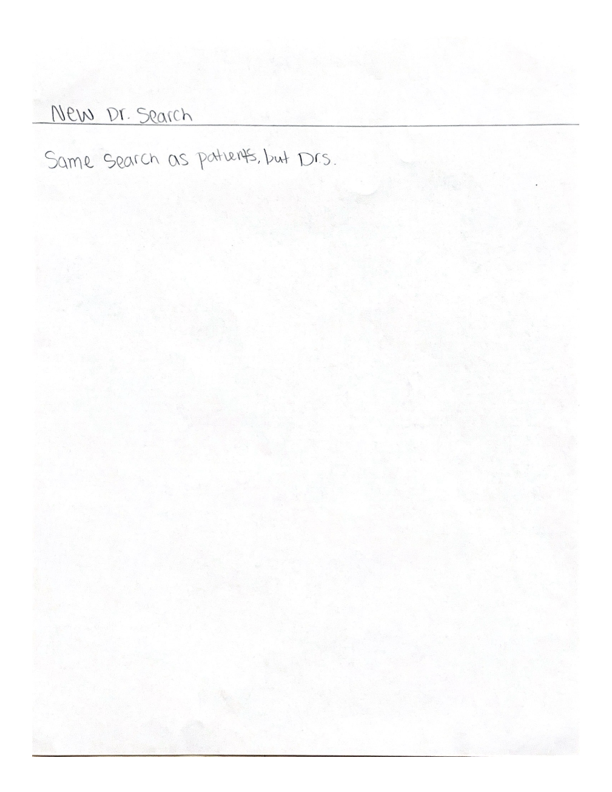 New Dr. Search
Same Search as patients, but Drs.